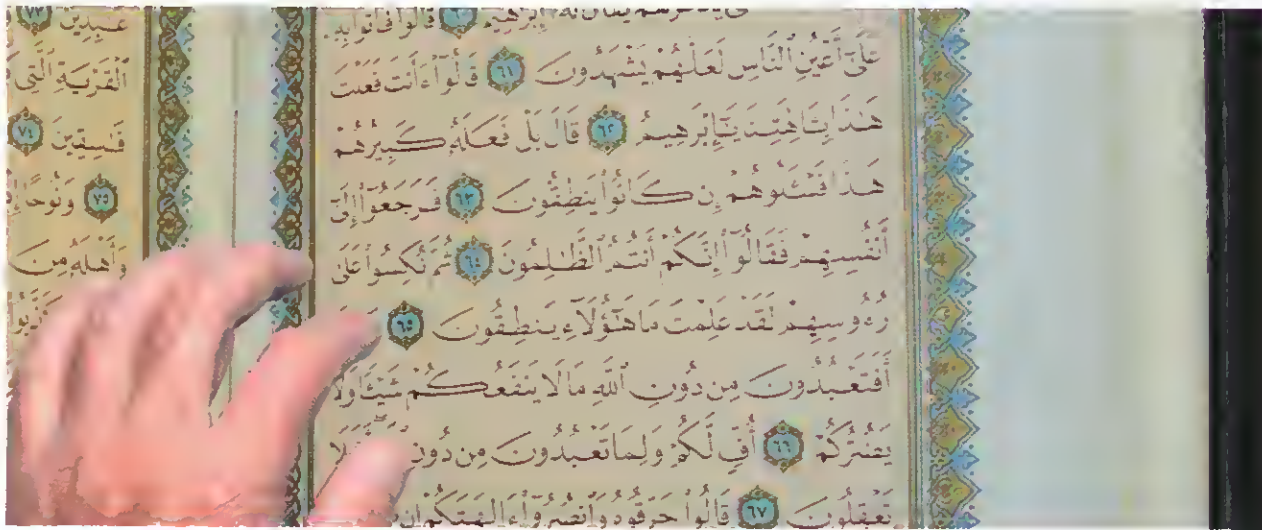 يَذْكُرُهُمْ يُقَالُ لَهُۥٓ إِبْرَٰهِيمُ ٦٠ قَالُوا۟ فَأْتُوا۟ بِهِۦ
عَلَىٰٓ أَعْيُنِ ٱلنَّاسِ لَعَلَّهُمْ يَشْهَدُونَ ٦١ قَالُوٓا۟ ءَأَنتَ فَعَلْتَ
هَـٰذَا بِـَٔالِهَتِنَا يَـٰٓإِبْرَٰهِيمُ ٦٢ قَالَ بَلْ فَعَلَهُۥ كَبِيرُهُمْ
هَـٰذَا فَسْـَٔلُوهُمْ إِن كَانُوا۟ يَنطِقُونَ ٦٣ فَرَجَعُوٓا۟ إِلَىٰٓ
أَنفُسِهِمْ فَقَالُوٓا۟ إِنَّكُمْ أَنتُمُ ٱلظَّـٰلِمُونَ ٦٤ ثُمَّ نُكِسُوا۟ عَلَىٰ
رُءُوسِهِمْ لَقَدْ عَلِمْتَ مَا هَـٰٓؤُلَآءِ يَنطِقُونَ ٦٥
أَفَتَعْبُدُونَ مِن دُونِ ٱللَّهِ مَا لَا يَنفَعُكُمْ شَيْـًٔا وَلَا
يَضُرُّكُمْ ٦٦ أُفٍّ لَّكُمْ وَلِمَا تَعْبُدُونَ مِن دُونِ
تَعْقِلُونَ ٦٧ قَالُوا۟ حَرِّقُوهُ وَٱنصُرُوٓا۟ ءَالِهَتَكُمْ إِن
عَـٰبِدِينَ ٧٣
ٱلْقَرْيَةِ ٱلَّتِى
فَـٰسِقِينَ ٧٤
٧٥ وَنُوحًا
وَأَهْلَهُۥ مِنَ